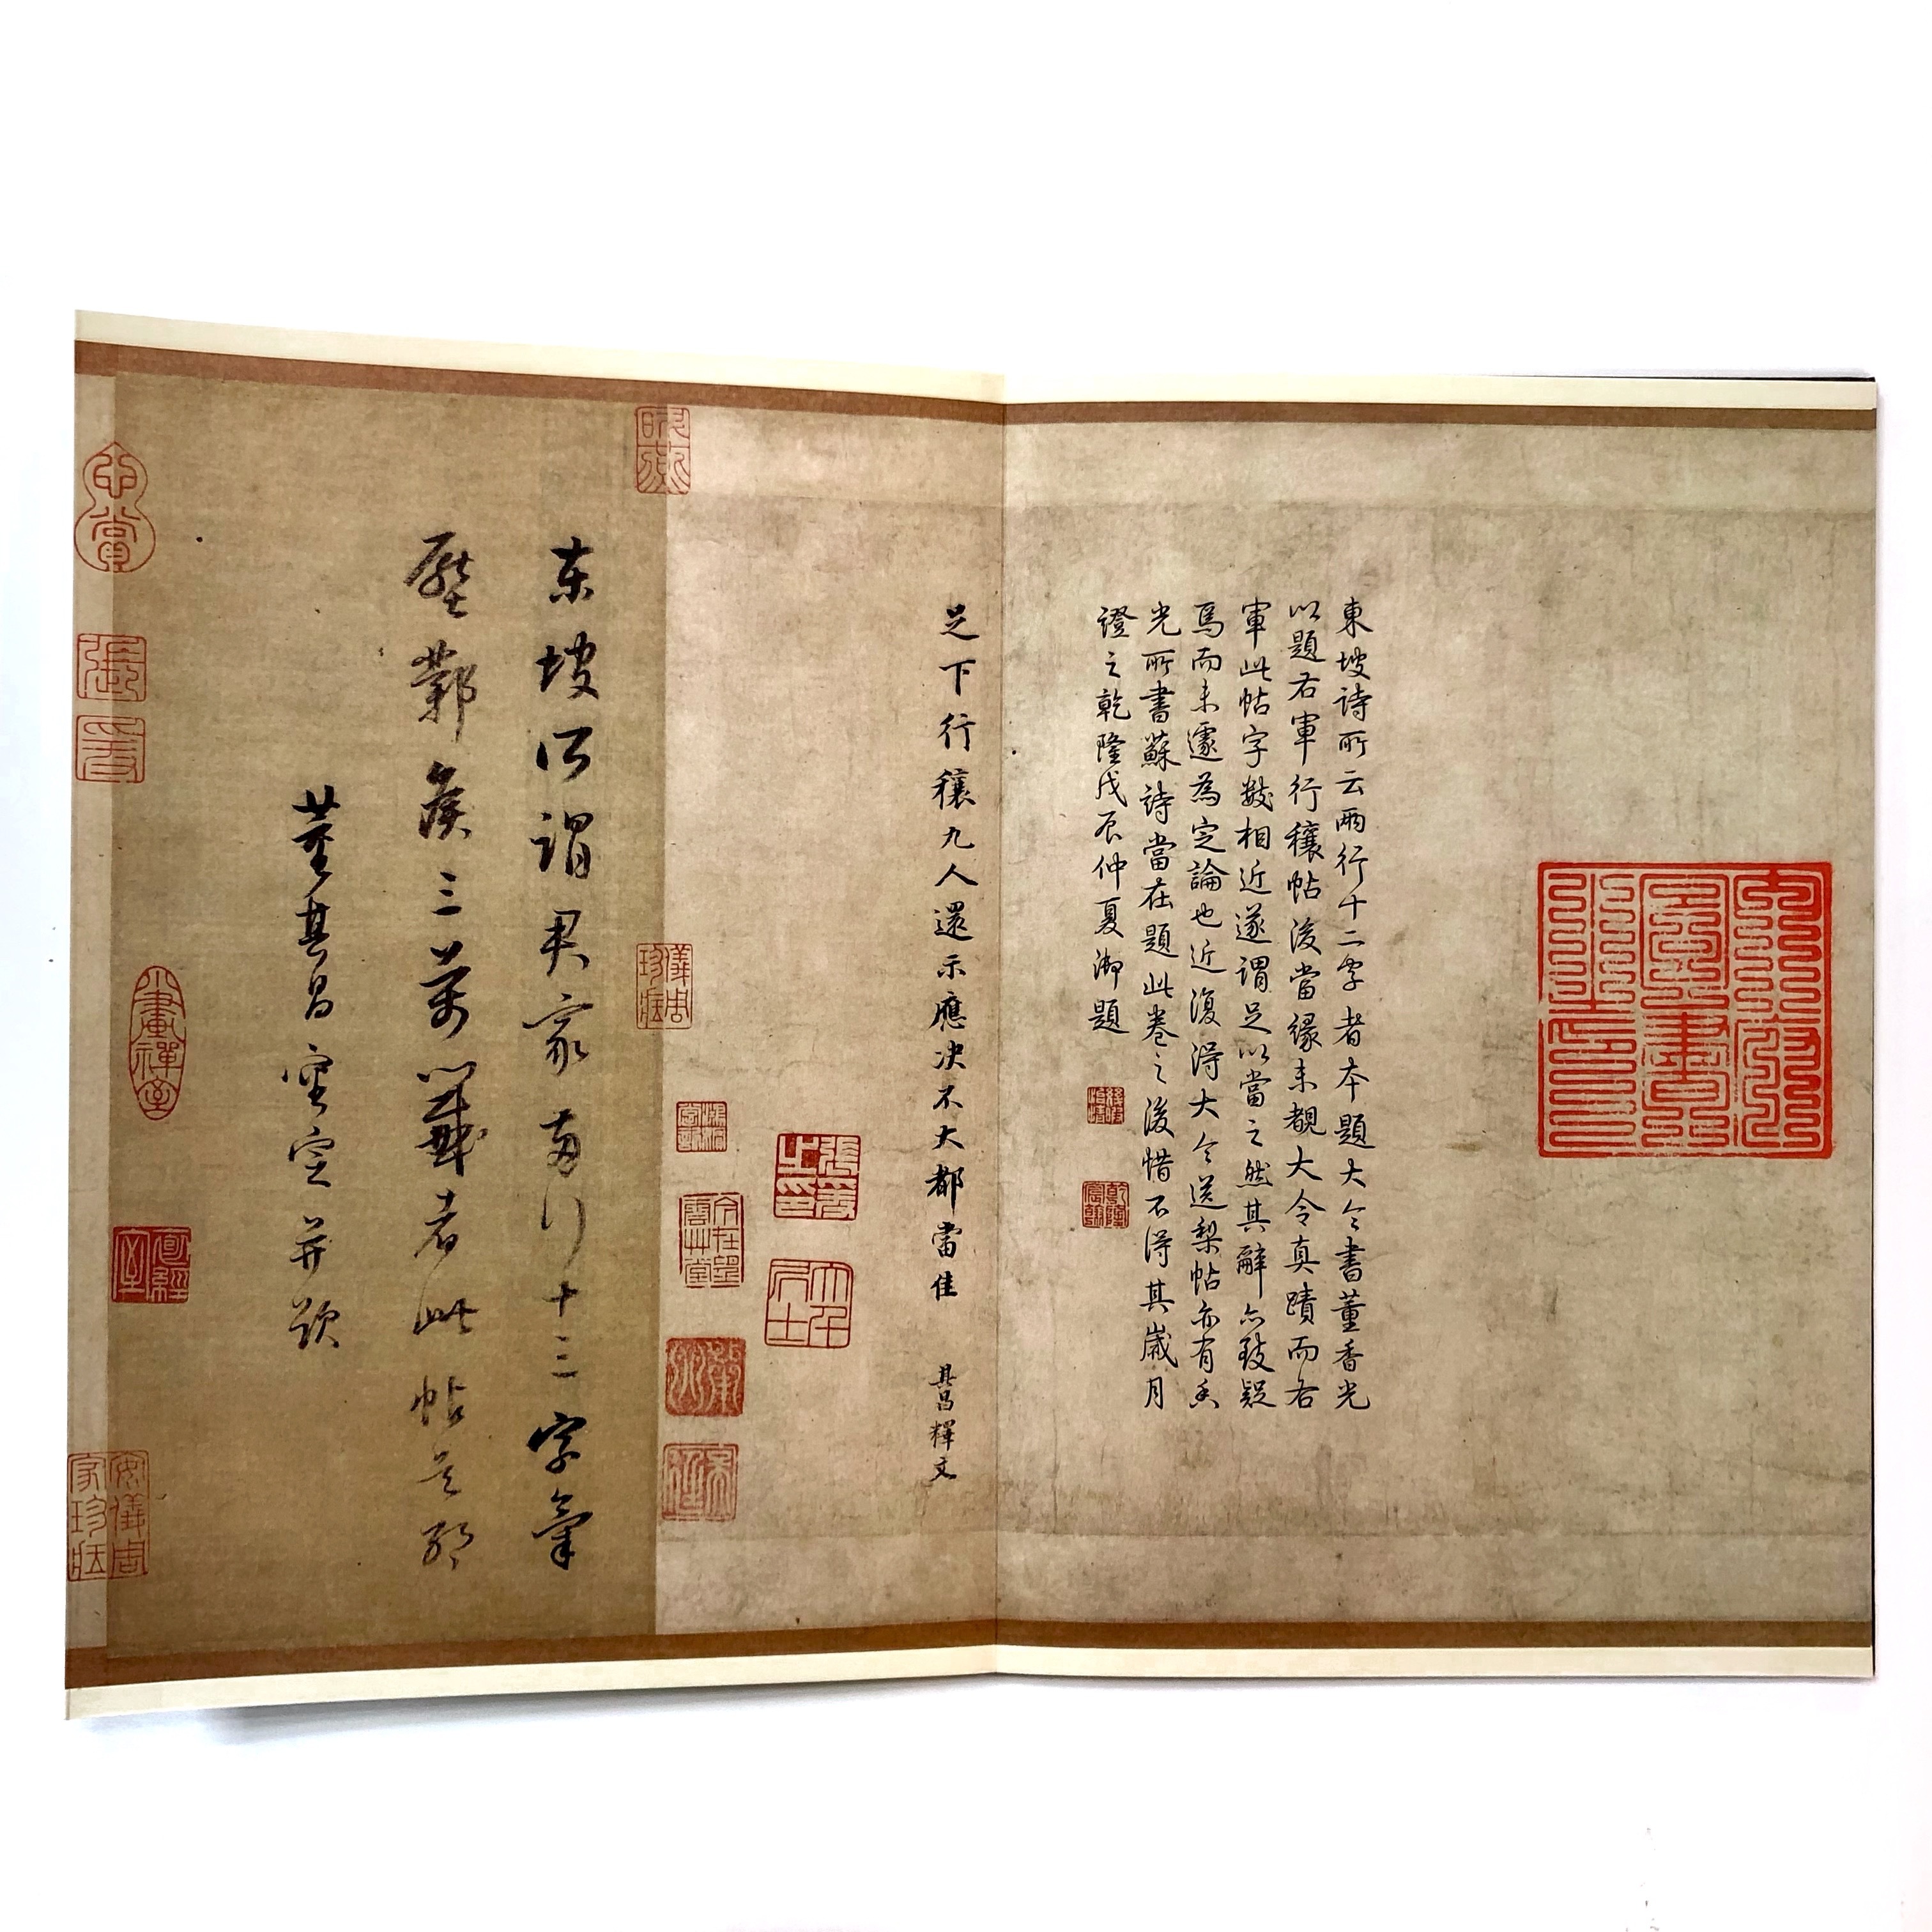 東坡詩所云兩行十二字者本題大令書董香光
以題右軍行穰帖後當緣未覩大令真蹟而右
軍此帖字數相近遂謂足以當之然其辭亦致疑
焉而未遽為定論也近復得大令送梨帖亦有香
光所書蘇詩當在題此卷之後惜不得其歲月
證之乾隆戊辰仲夏御題
足下行穰九人還示應决不大都當佳
其昌釋文
東坡所謂君家兩行十三字氣
壓鄴侯三萬籤者此帖是耶
董其昌審定并題
張爰之印
大千居士
儀周珍藏
畫禪室
安儀周家珍藏